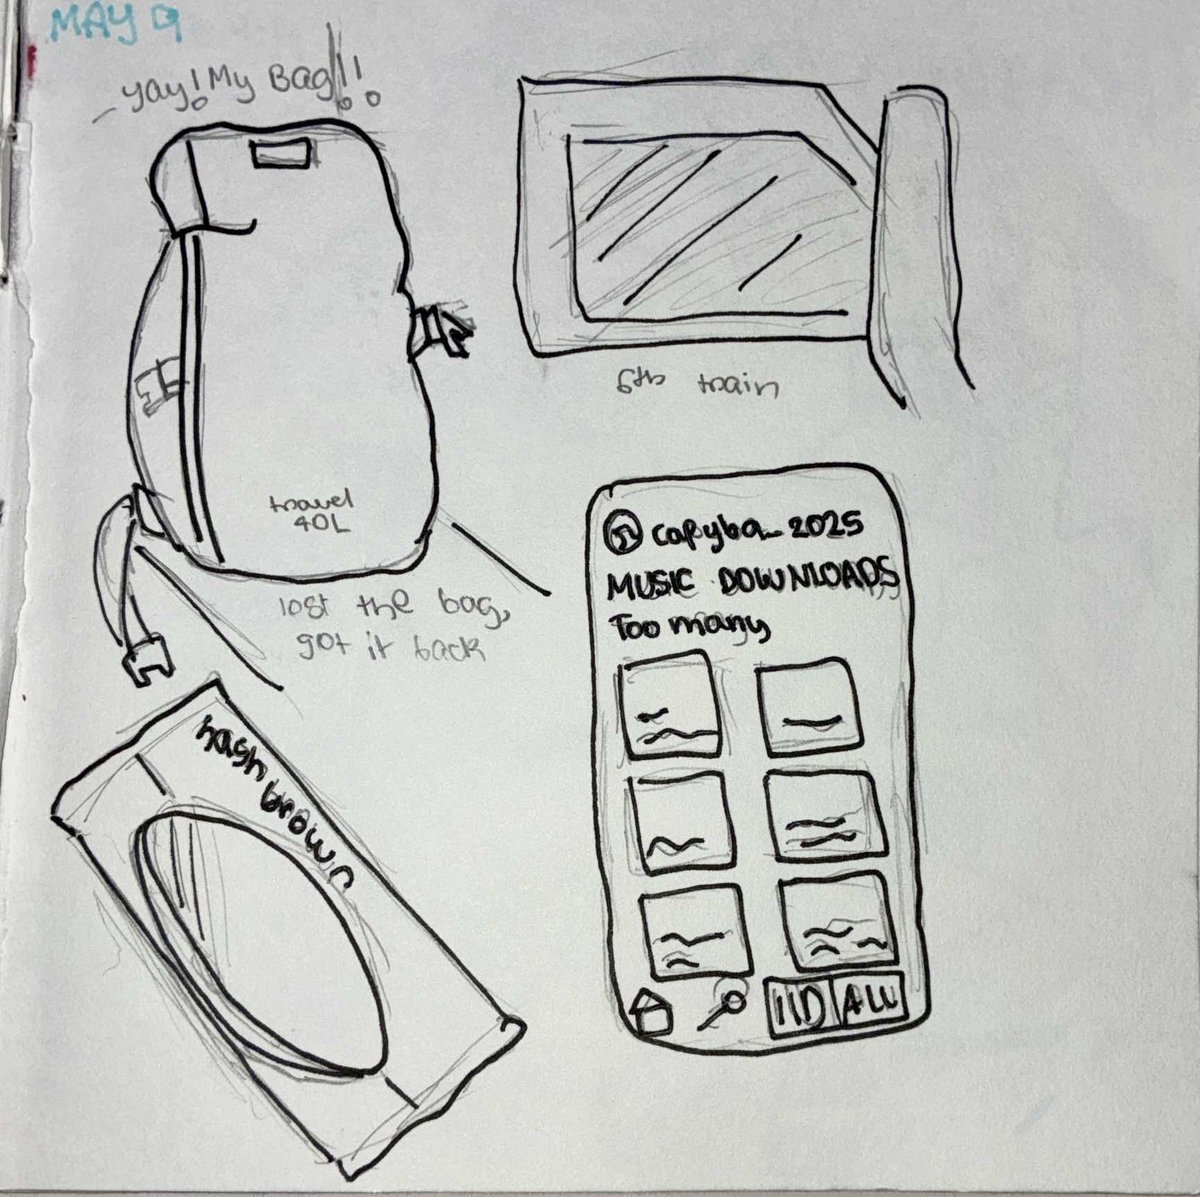 MAY 9
yay! My Bag!!!
travel
40L
lost the bag,
got it back
6th train
capyba_2025
MUSIC DOWNLOADS
Too many
hash brown